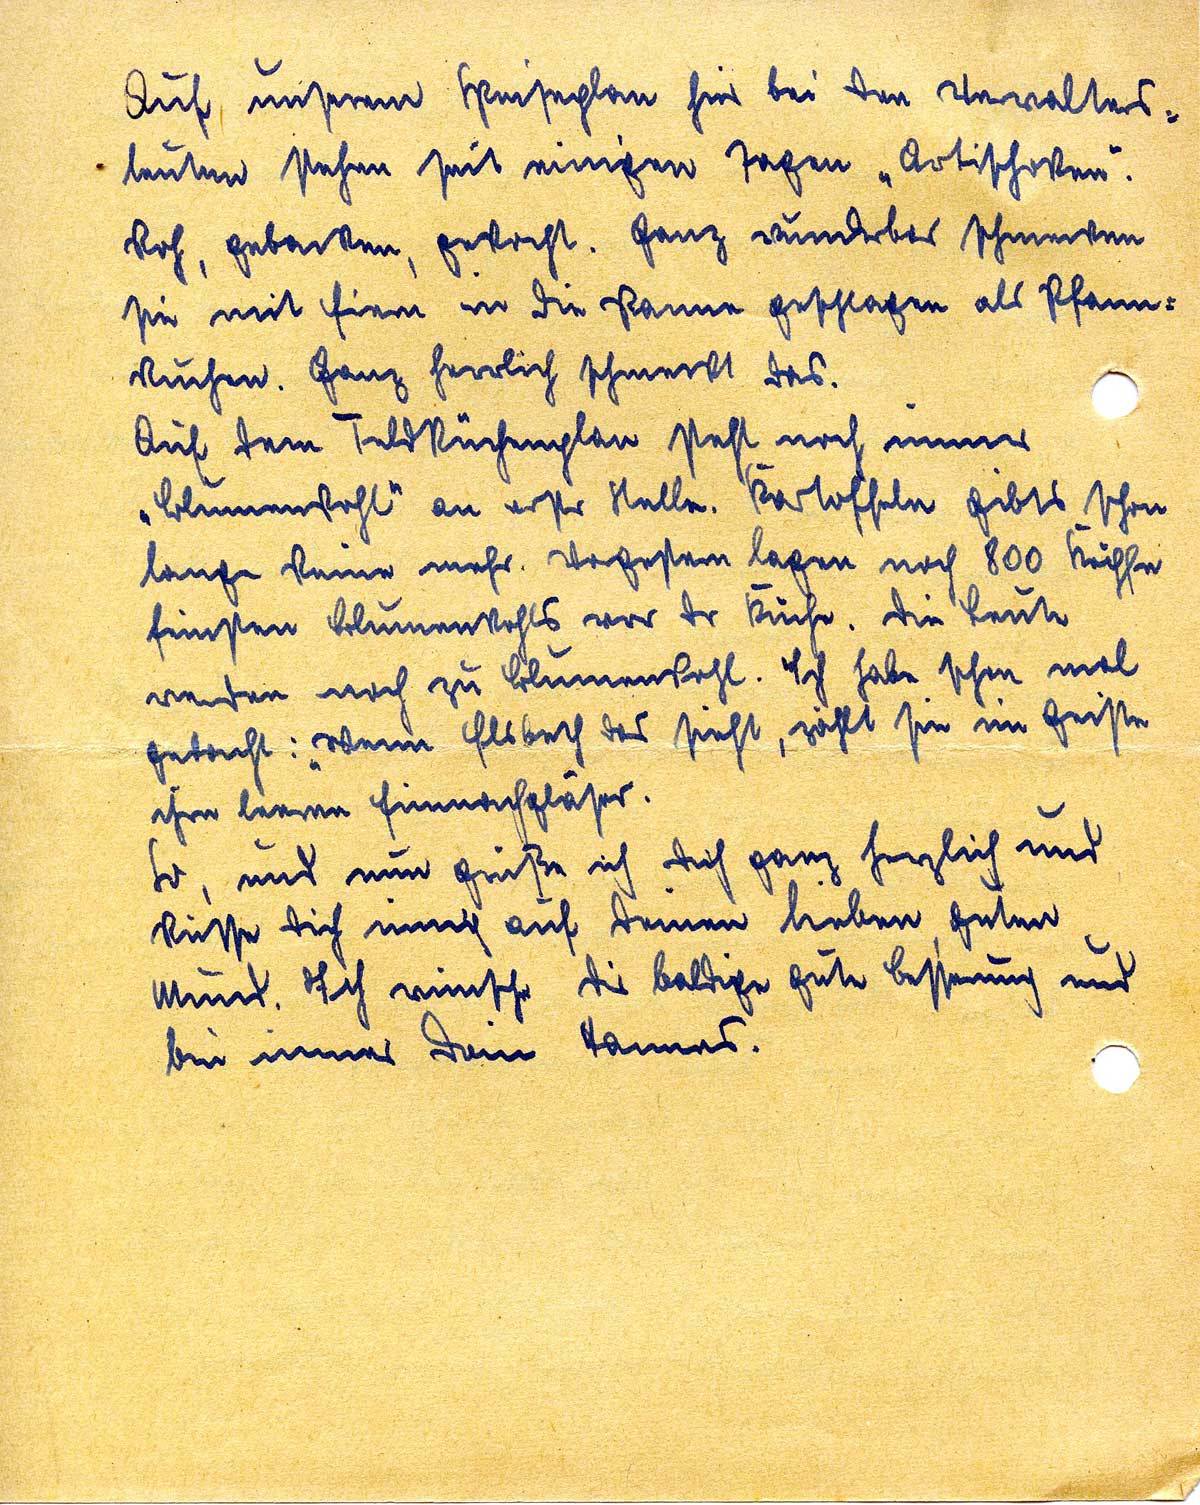 Auf unserem Speiseplan hier bei den Verwalters=
leuten stehen seit einigen Tagen „Artischoken".
Roh, gebacken, gekocht. Ganz wunderbar schmecken
sie mit Eiern in die Panne geschlagen als Pfann=
kuchen. Ganz herrlich schmeckt das.
Auf dem Feldküchenplan steht noch immer
„Blumenkohl" an erster Stelle. Kartoffeln gibts schon
lange keine mehr. Vorgestern lagen noch 800 Köpfe
feinsten Blumenkohls vor der Küche. Die Leute
werden noch zu Blumenkohl. Ich habe schon mal
gedacht: „Wenn Elsbeth das sieht, zählt sie im Geiste
ihre leeren Einmachgläser.
So, und nun grüße ich Dich ganz herzlich und
küsse Dich innig auf Deinen lieben, guten
Mund. Ich wünsche Dir baldige gute Besserung und
bin immer Dein Hannes.